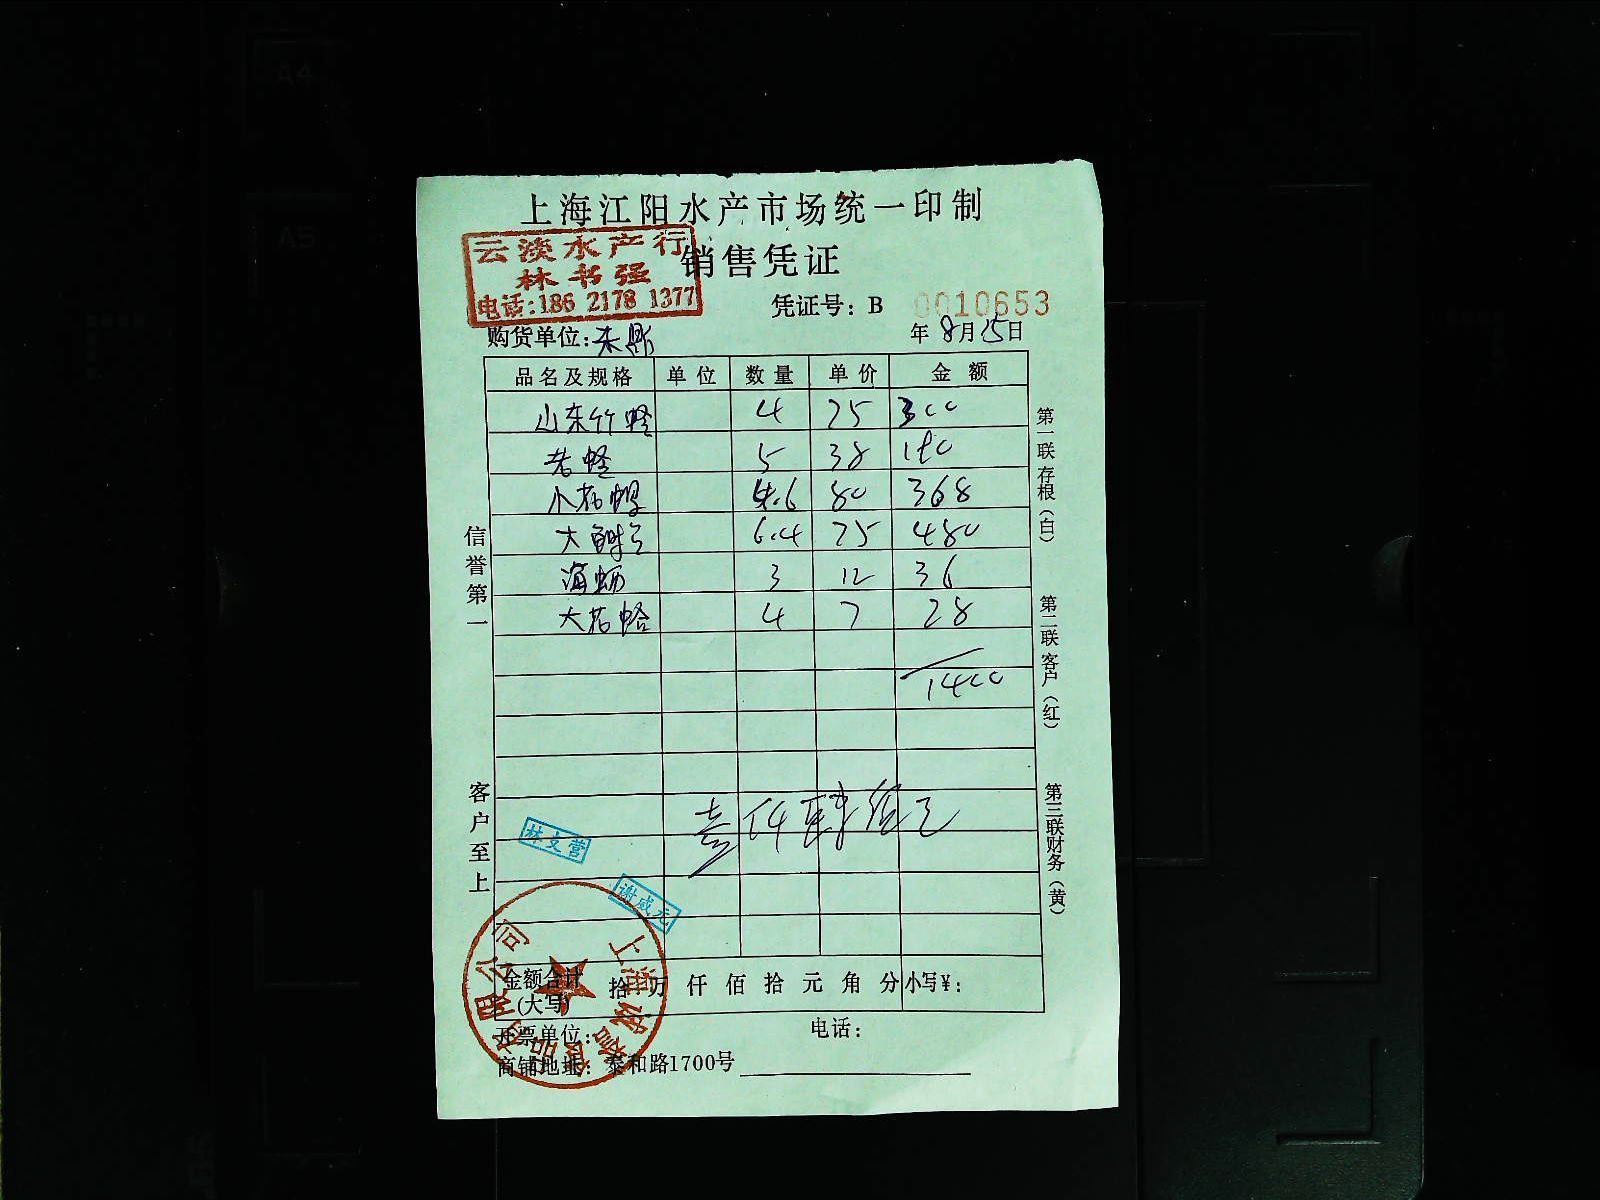 上海江阳水产市场统一印制
云淡水产行
林书强
电话:186 2178 1377
销售凭证
凭证号：B 0010653
购货单位:
年 8月15日
品名及规格 单位 数量 单价 金额
山东竹蛏 4 75 300
老蛏 5 38 190
小花螺 4.6 80 368
大 6.4 75 480
海蛎 3 12 36
大花蛤 4 7 28
1400
壹仟肆佰元
信誉第一
客户至上
第一联存根（白）
第二联客户（红）
第三联财务（黄）
林文营
谢咸元
金额合计(大写) 拾 万 仟 佰 拾 元 角 分 小写￥：
开票单位： 电话：
商铺地址：泰和路1700号
上海诚鑫食品有限公司